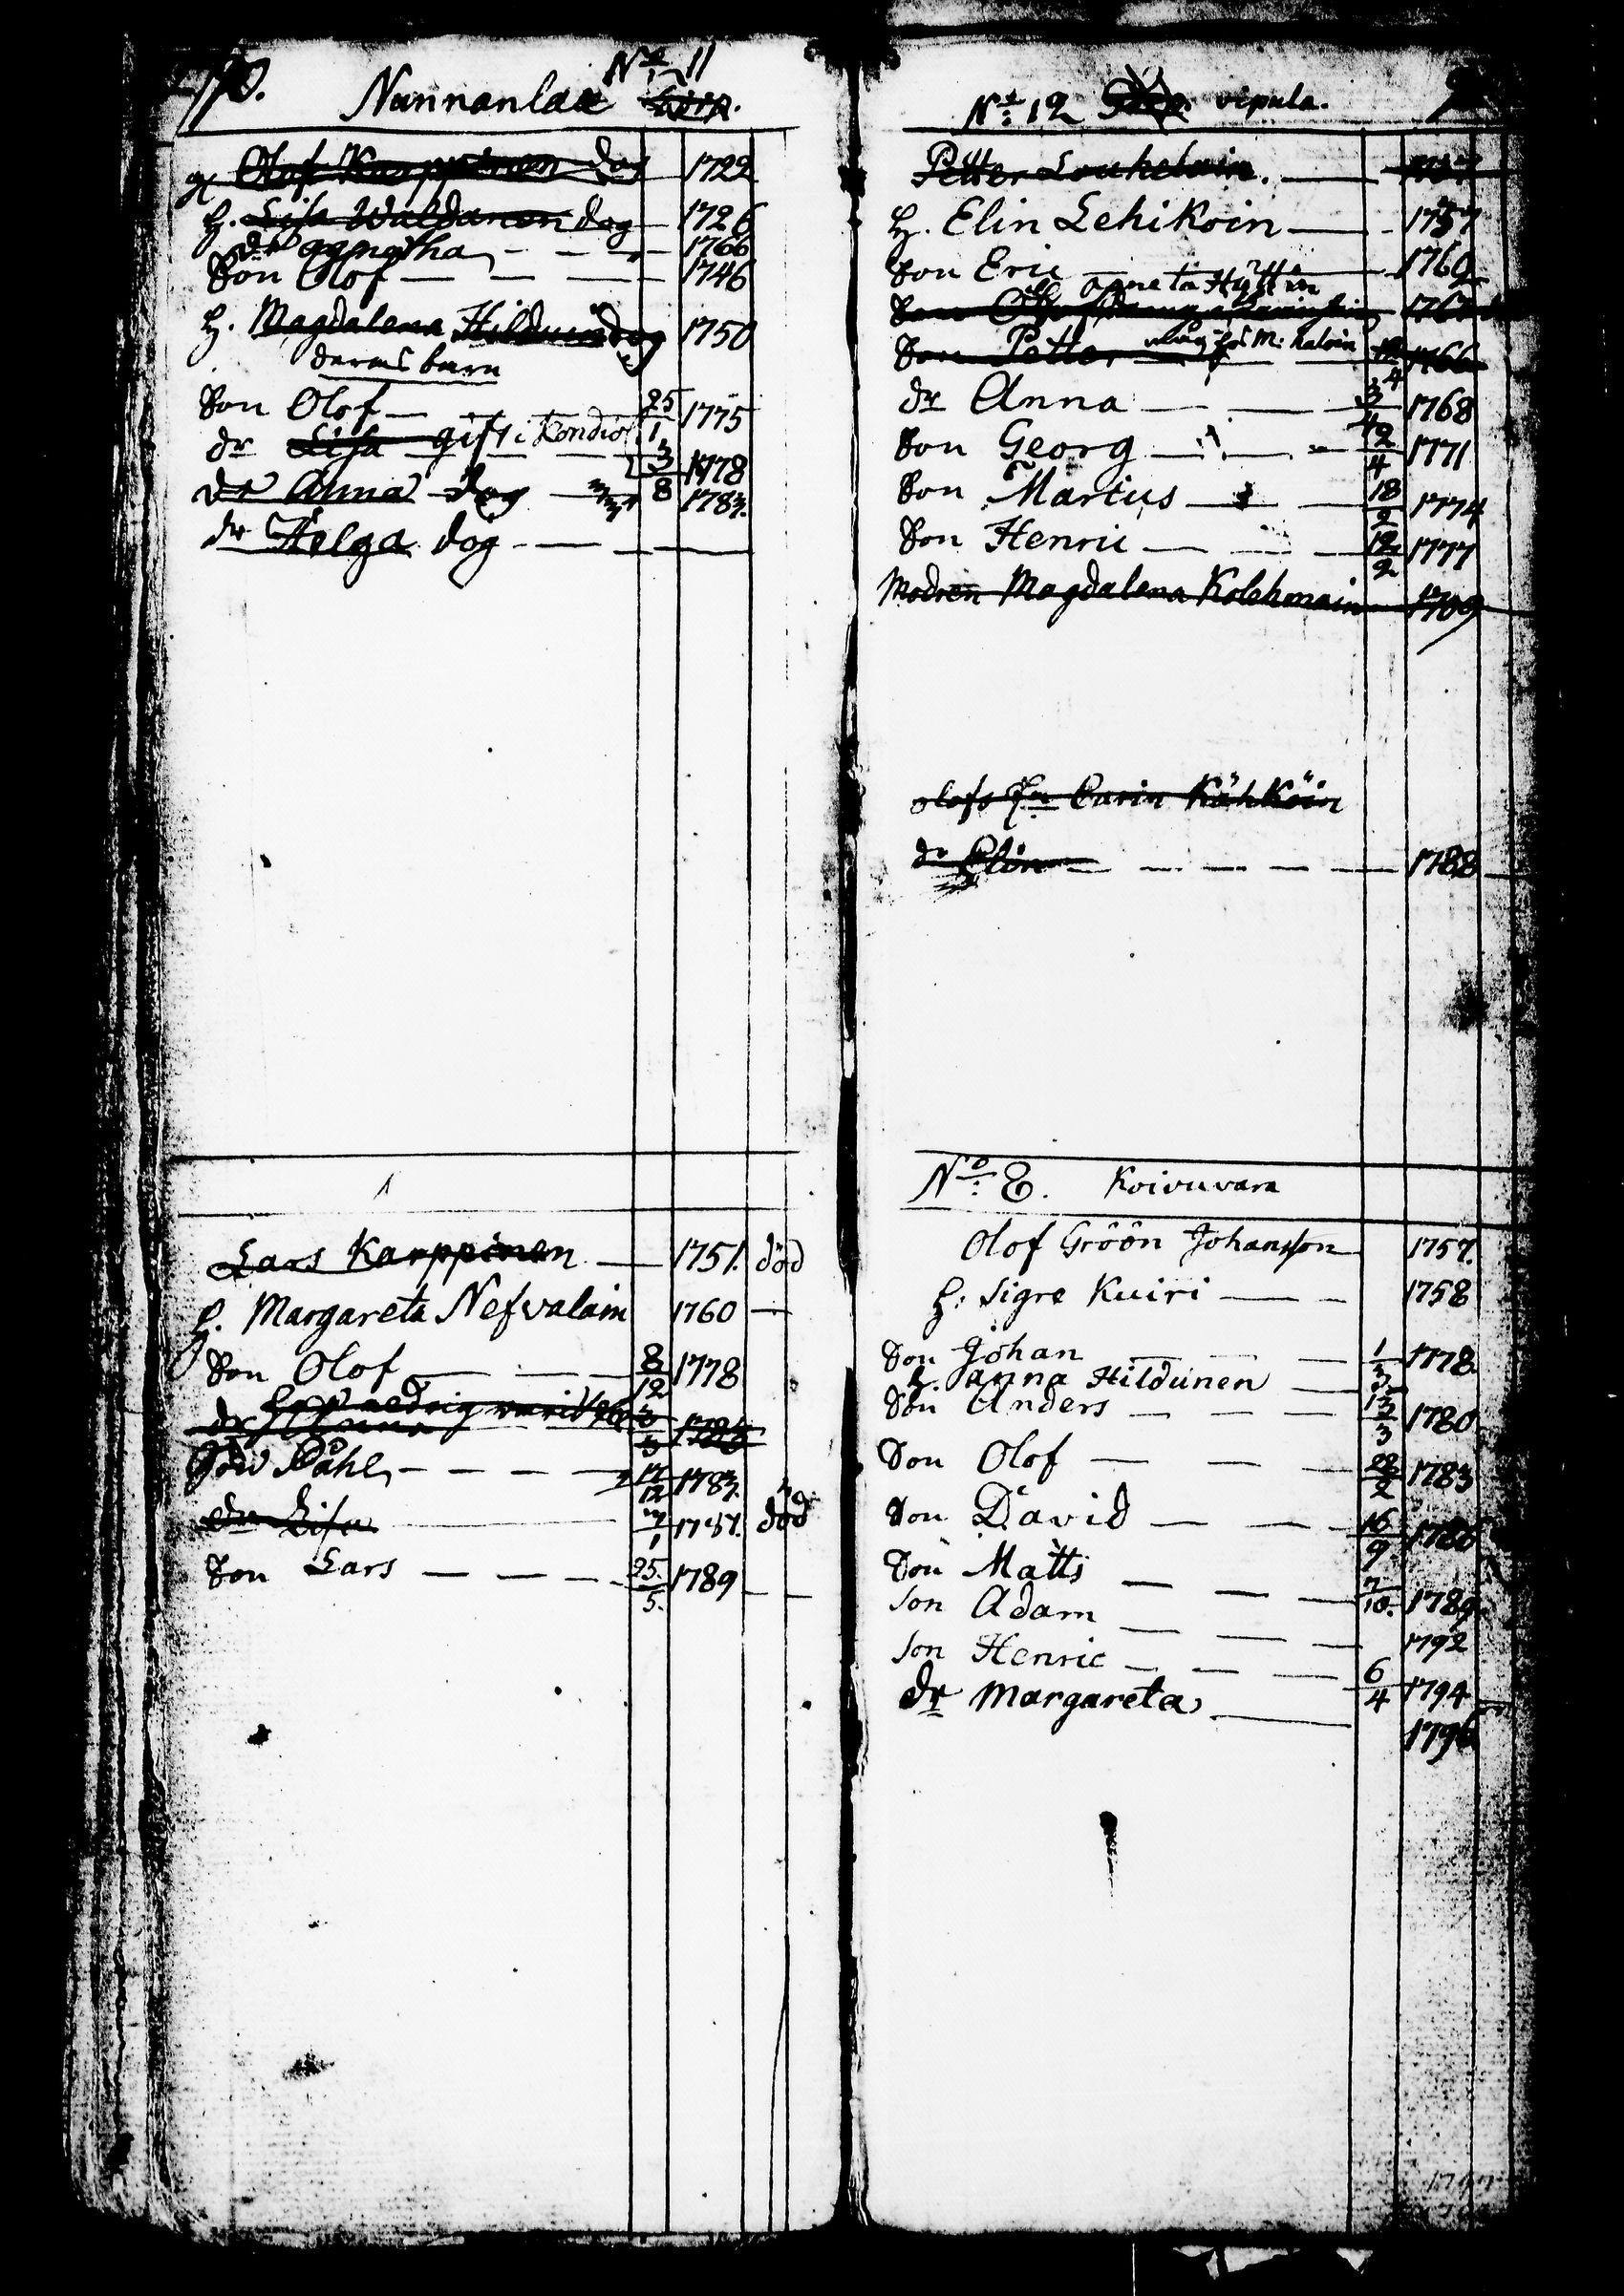 No 11
Nannanlax
Olof Karppinen dog 1722
H. Lisa Waldanen dog 1726
dr agnetha 1766
Son Olof 1746
H. Magdalena Hilduin dog 1750
deras barn
Son Olof 25/1 1775
dr Lisa gift i Kondio 3/8 1778
dr Anna dog 1783.
dr Helga dog
Lars Karppinen 1751. död
H. Margareta Nefvalain 1760
Son Olof 8/12 1778
har aldrig warit
dr Anna
Son Påhl 17/12 1783.
dr Lisa 7/1 1787. död
Son Lars 25/5. 1789
No 12 vipula.
Petter Louhelain.
H. Elin Lehikoin 1737
Son Eric 1762
agneta Hyttin
Son Petter 1766
dr Anna 3/4 1768
Son Georg 12/4 1771
Son Martius 18/2 1774
Son Henric 12/2 1777
Modren Magdalena Kolehmain 1709
olofs Carin Kähköin
dr Elin 1788
No 8. Koivuvara
Olof Gröön Johansson 1757.
H: Sigre Kuiri 1758
Son Johan 1/3 1778
H. anna Hildunen
Son Anders 13/3 1780
Son Olof 22/2 1783
Son David 16/9 1786
Son Matts 7/10. 1789
son Adam 1792
son Henric 6/4 1794
dr Margareta 1796